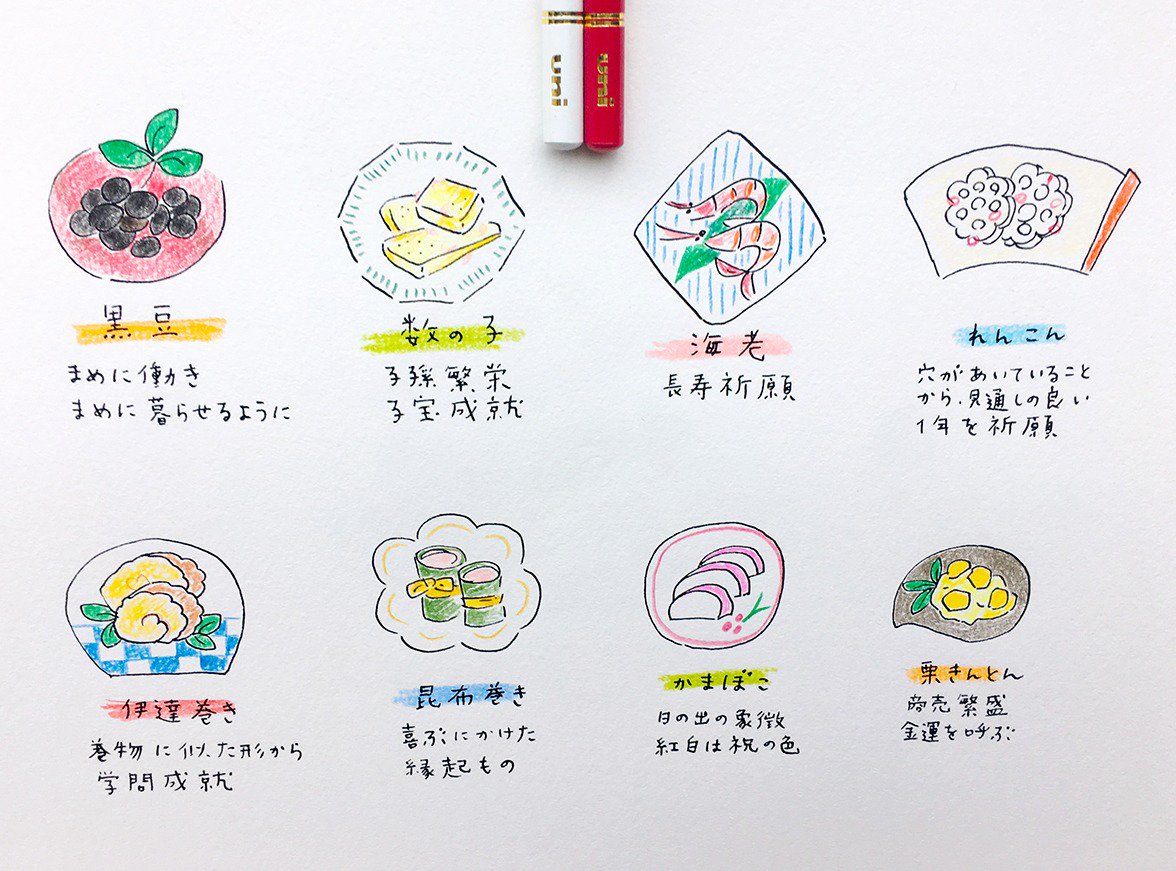 uni
uni
黒豆
まめに働き
まめに暮らせるように
数の子
子孫繁栄
子宝成就
海老
長寿祈願
れんこん
穴があいていること
から、見通しの良い
1年を祈願
伊達巻き
巻物に似た形から
学問成就
昆布巻き
喜ぶにかけた
縁起もの
かまぼこ
日の出の象徴
紅白は祝の色
栗きんとん
商売繁盛
金運を呼ぶ